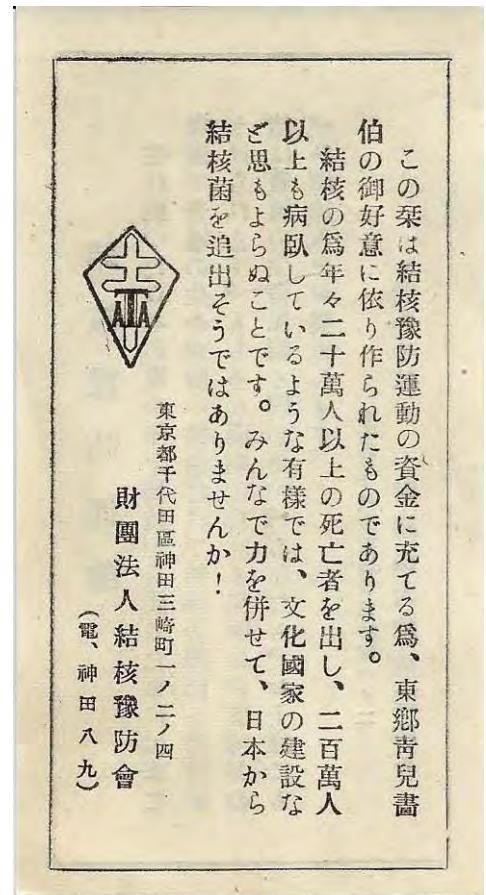 この栞は結核豫防運動の資金に充てる爲、東鄕靑兒畫
伯の御好意に依り作られたものであります。
結核の爲年々二十萬人以上の死亡者を出し、二百萬人
以上も病臥しているような有樣では、文化國家の建設な
ど思もよらぬことです。みんなで力を併せて、日本から
結核菌を追出そうではありませんか！
東京都千代田區神田三崎町一ノ二ノ四
財團法人結核豫防會
（電、神田八九）
ATA